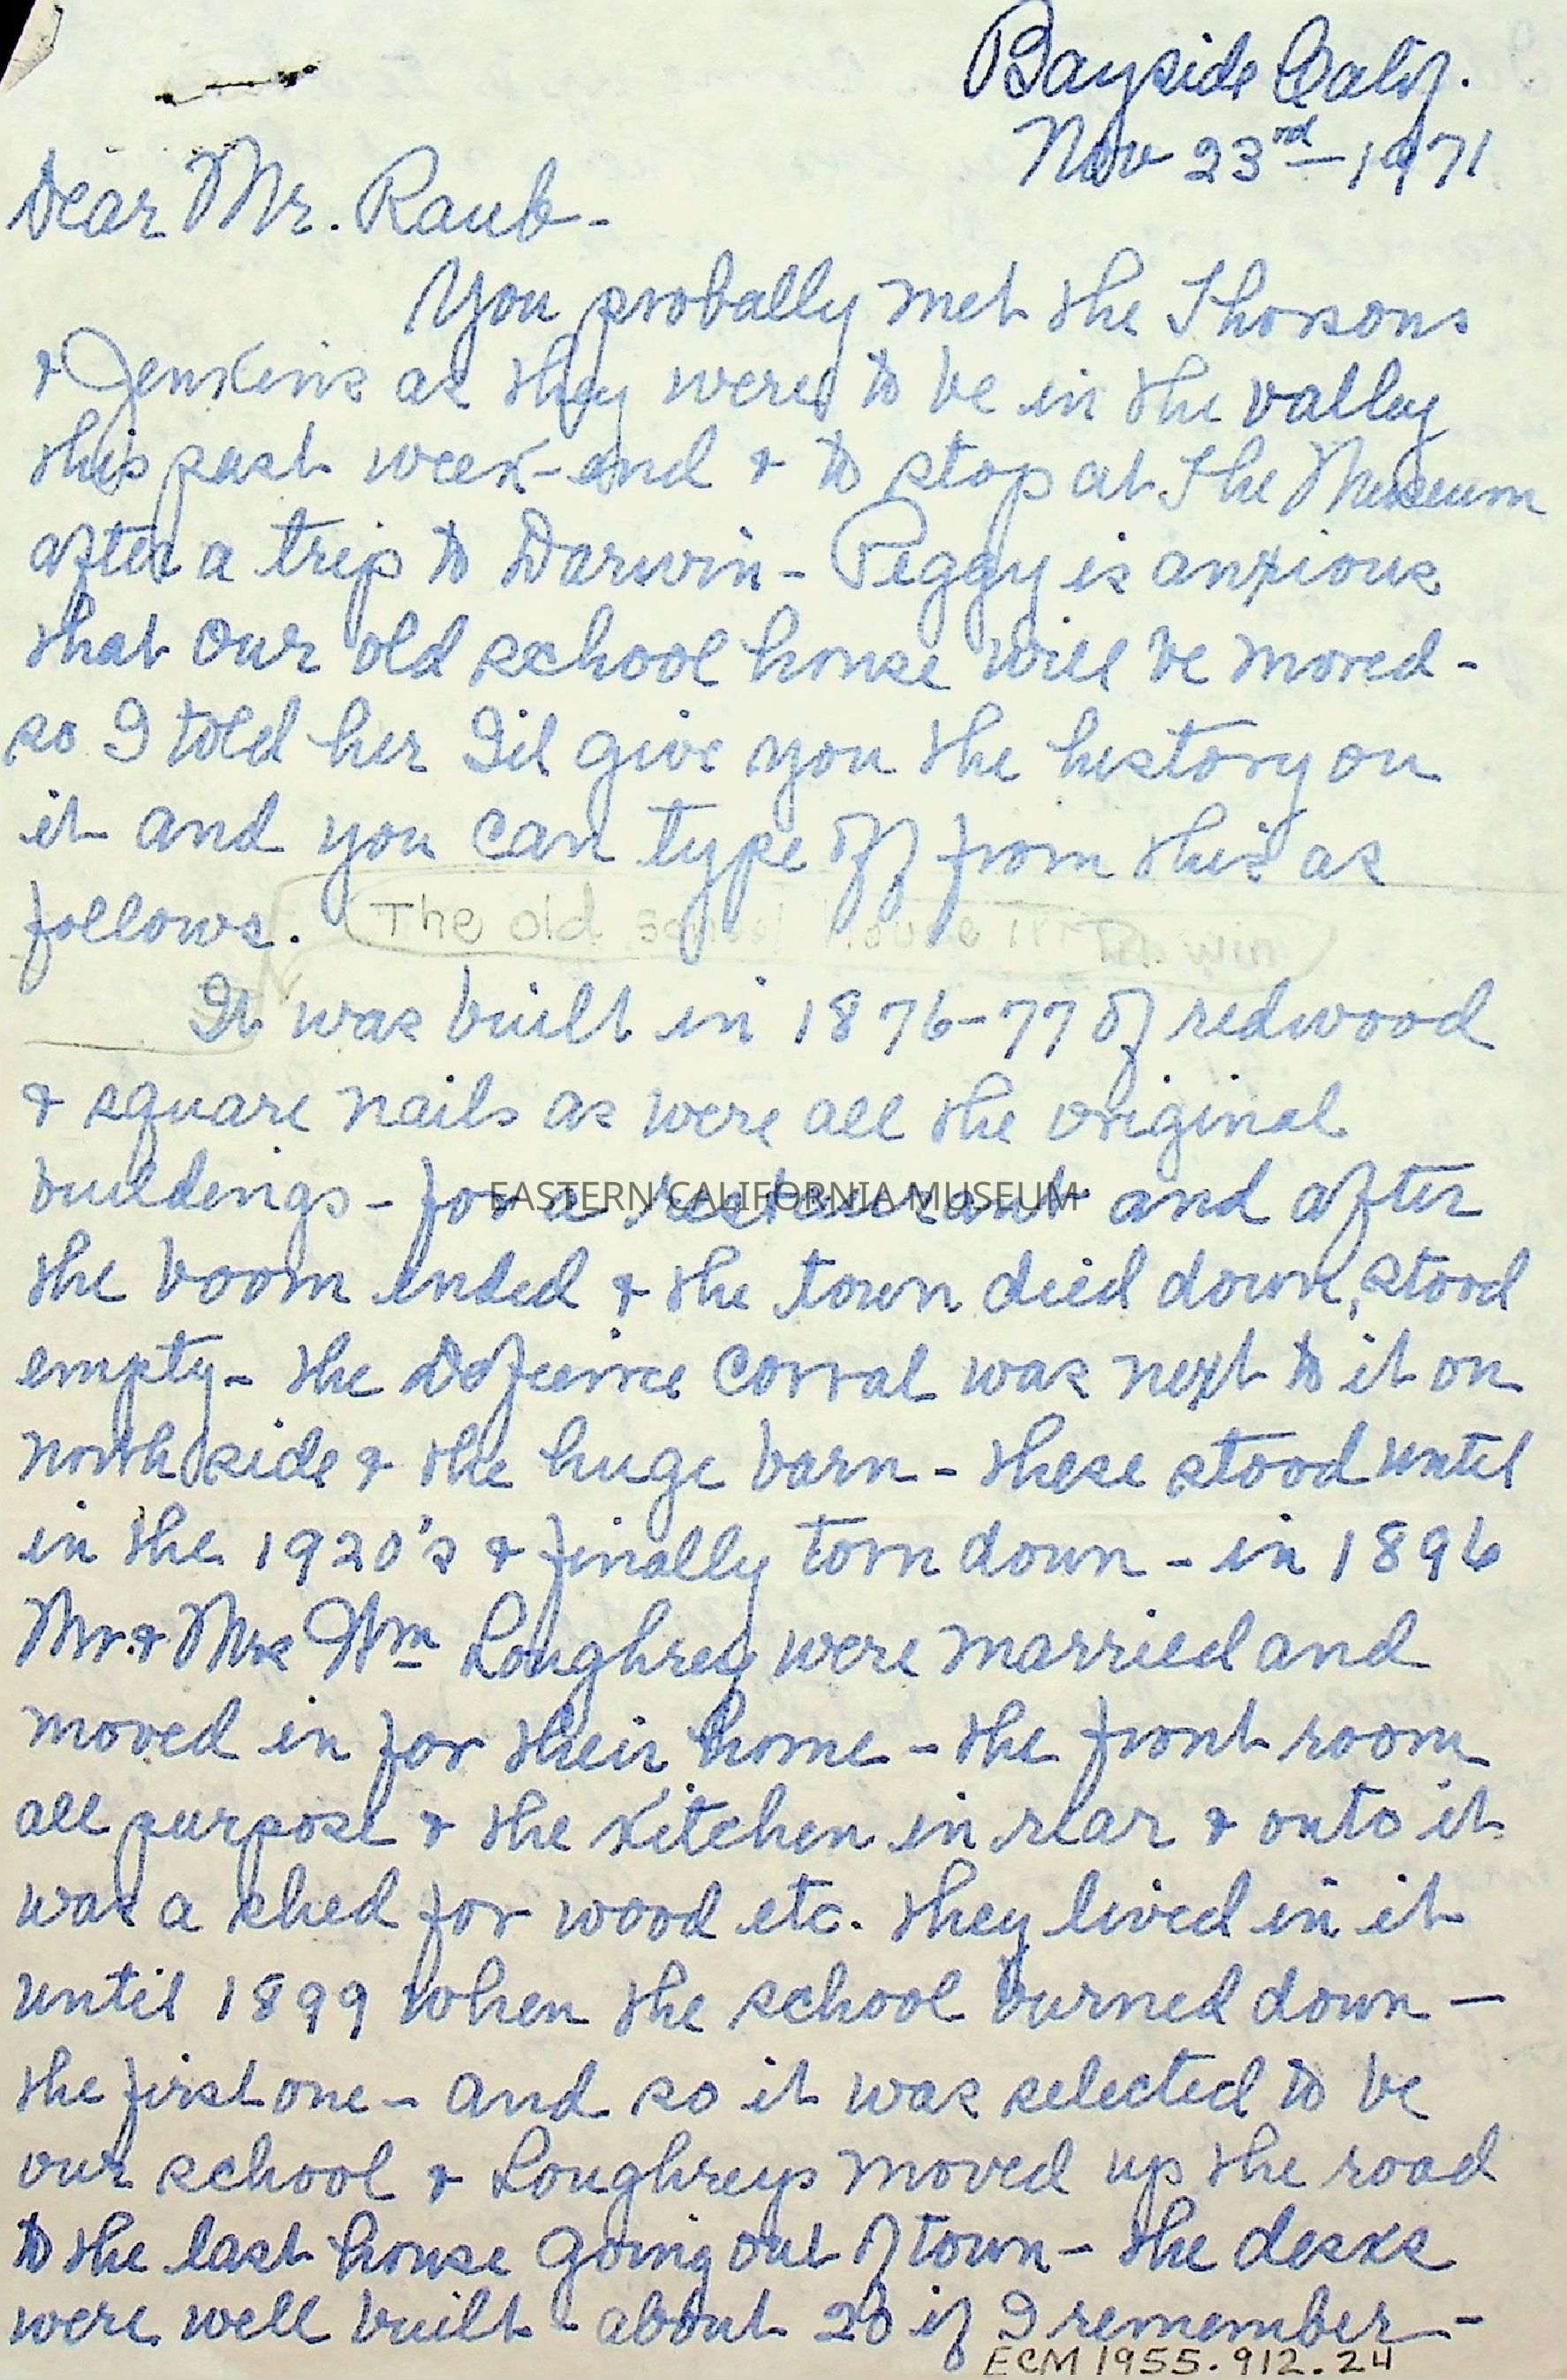 Bayside Calif.
Nov 23rd - 1971
Dear Mr. Raub -
You probally met the Thorsons
& Jenkins as they were to be in the valley
this past week-end & to stop at The Museum
after a trip to Darwin - Peggy is anxious
that our old school house will be moved -
so I told her I'il give you the history on
it and you can type off from this as
follows. The old school house in Darwin
It was built in 1876-77 of redwood
& square nails as were all the original
buildings - for a restaurant and after
EASTERN CALIFORNIA MUSEUM
the boom ended & the town died down, stood
empty - the Defience Corral was next to it on
north side & the huge barn - these stood until
in the 1920's & finally torn down - in 1896
Mr. & Mrs Wm Loughrey were married and
moved in for their home - the front room
all purpose & the kitchen in rear & onto it
was a shed for wood etc. they lived in it
until 1899 when the school burned down -
the first one - and so it was selected to be
our school & Loughreys moved up the road
to the last house going out of town - the desks
were well built - about 20 if I remember -
ECM 1955.912.24